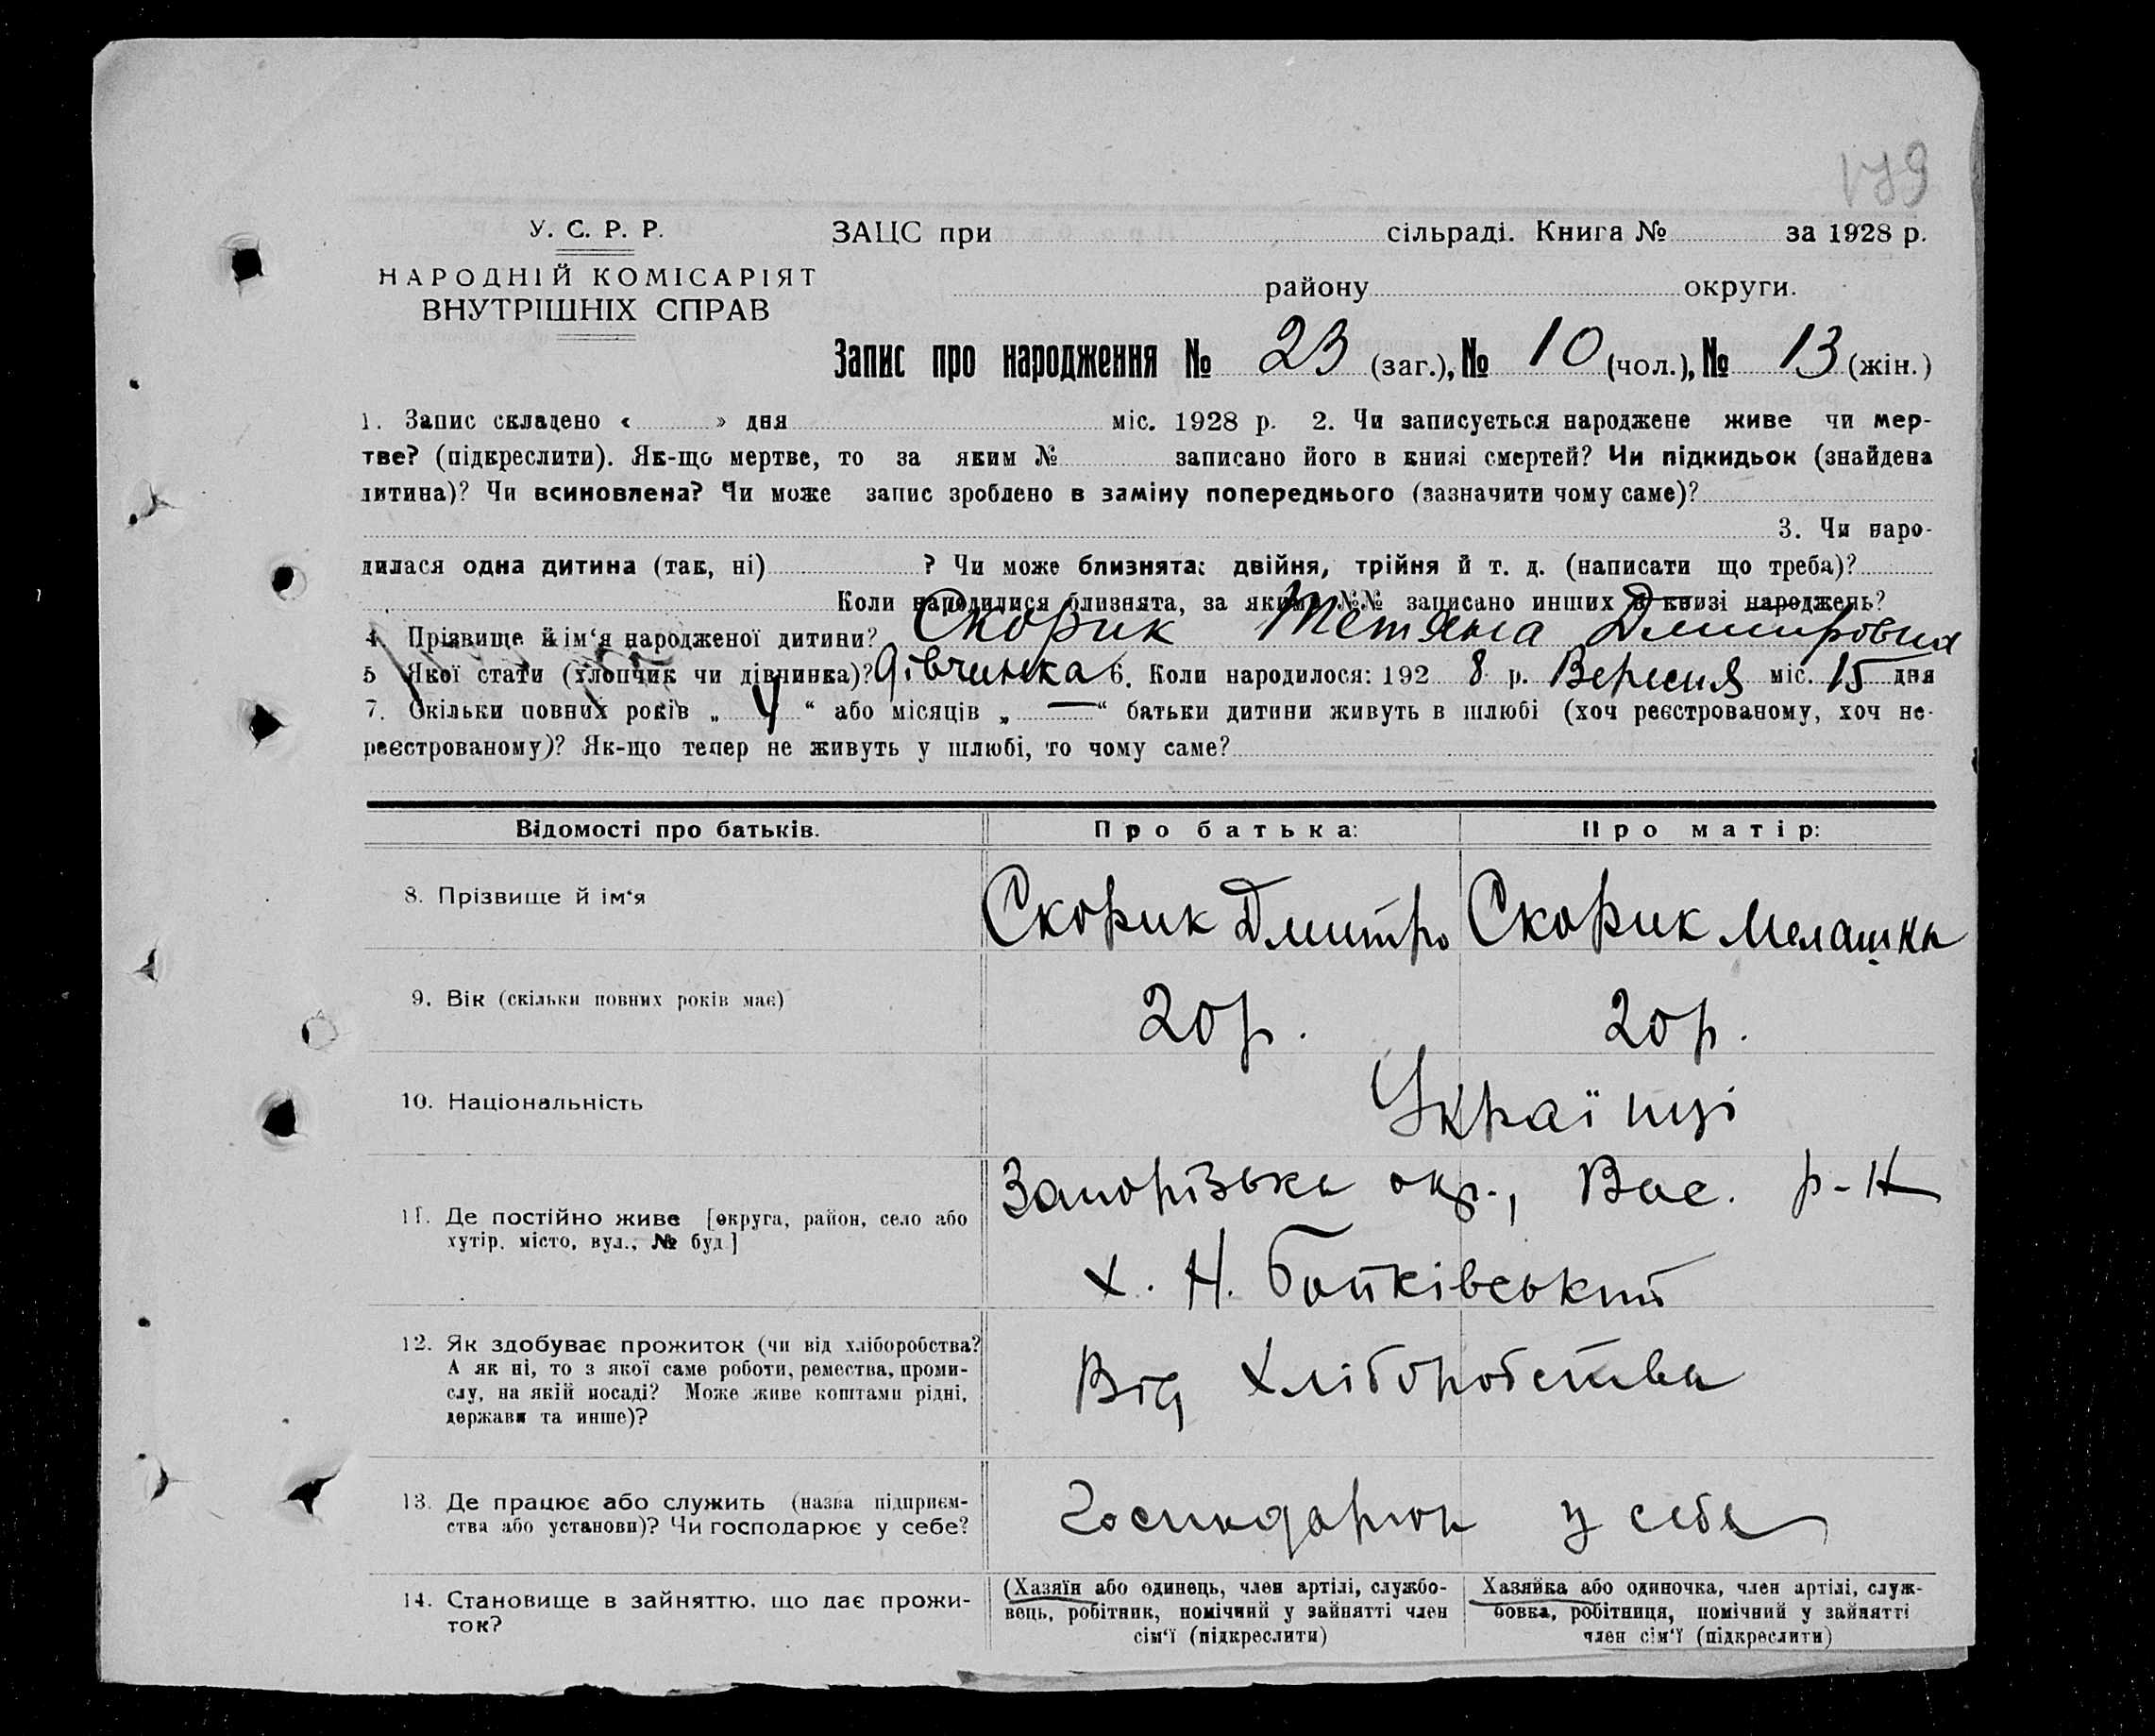 179
У. С. Р. Р.
НАРОДНІЙ КОМІСАРІЯТ
ВНУТРІШНІХ СПРАВ
ЗАЦС при сільраді. Книга № за 1928 р.
району округи.
Запис про народження № 23 (заг.), № 10 (чол.), № 13 (жін.)
1. Запис складено « » дня міс. 1928 р. 2. Чи записується народжене живе чи мер-
тве? (підкреслити). Як-що мертве, то за яким № записано його в книзі смертей? Чи підкидьок (знайдена
дитина)? Чи всиновлена? Чи може запис зроблено в заміну попереднього (зазначити чому саме)?
3. Чи наро-
дилася одна дитина (так, ні) ? Чи може близнята: двійня, трійня й т. д. (написати що треба)?
Коли народилися близнята, за якими №№ записано инших в книзі народжень?
4. Прізвище й ім‘я народженої дитини? Скорик Тетяна Дмитровна
5 Якої стати (хлопчик чи дівчинка)? дівчинка 6. Коли народилося: 192 8 р. Вересня міс. 15 дня
7. Скільки повних років „ 4 “ або місяців „ — “ батьки дитини живуть в шлюбі (хоч реєстрованому, хоч не-
реєстрованому)? Як-що тепер не живуть у шлюбі, то чому саме?
Відомості про батьків. Про батька: Про матір:
8. Прізвище й ім‘я Скорик Дмитро Скорик Мелашка
9. Вік (скільки повних років має) 20 р. 20 р.
10. Національність Українці
11. Де постійно живе [округа, район, село або
хутір, місто, вул., № буд.]
Запорізька окр., Вас. р-н
х. Н. Бойківський
12. Як здобуває прожиток (чи від хліборобства?
А як ні, то з якої саме роботи, ремества, проми-
слу, на якій посаді? Може живе коштами рідні,
держави та инше)?
Від Хліборобства
13. Де працює або служить (назва підприєм-
ства або установи)? Чи господарює у себе?
у себе
14. Становище в зайняттю, що дає прожи-
ток?
(Хазяїн або одинець, член артілі, службо-
вець, робітник, помічний у зайнятті член
сім‘ї (підкреслити)
Хазяйка або одиночка, член артілі, служ-
бовка, робітниця, помічний у зайнятті
член сім‘ї (підкреслити)